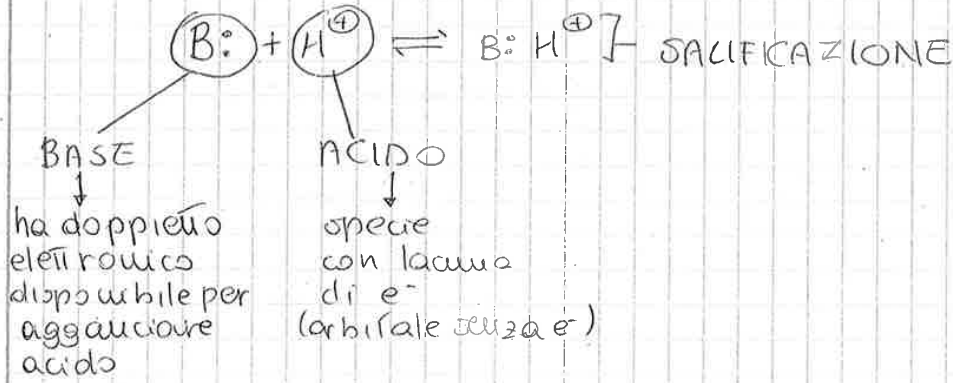 B: + H⊕ ⇌ B:H⊕ ]- SALIFICAZIONE
BASE
ACIDO
ha doppietto
elettronico
disponibile per
agganciare
acido
specie
con lacuna
di e-
(orbitale senza e-)